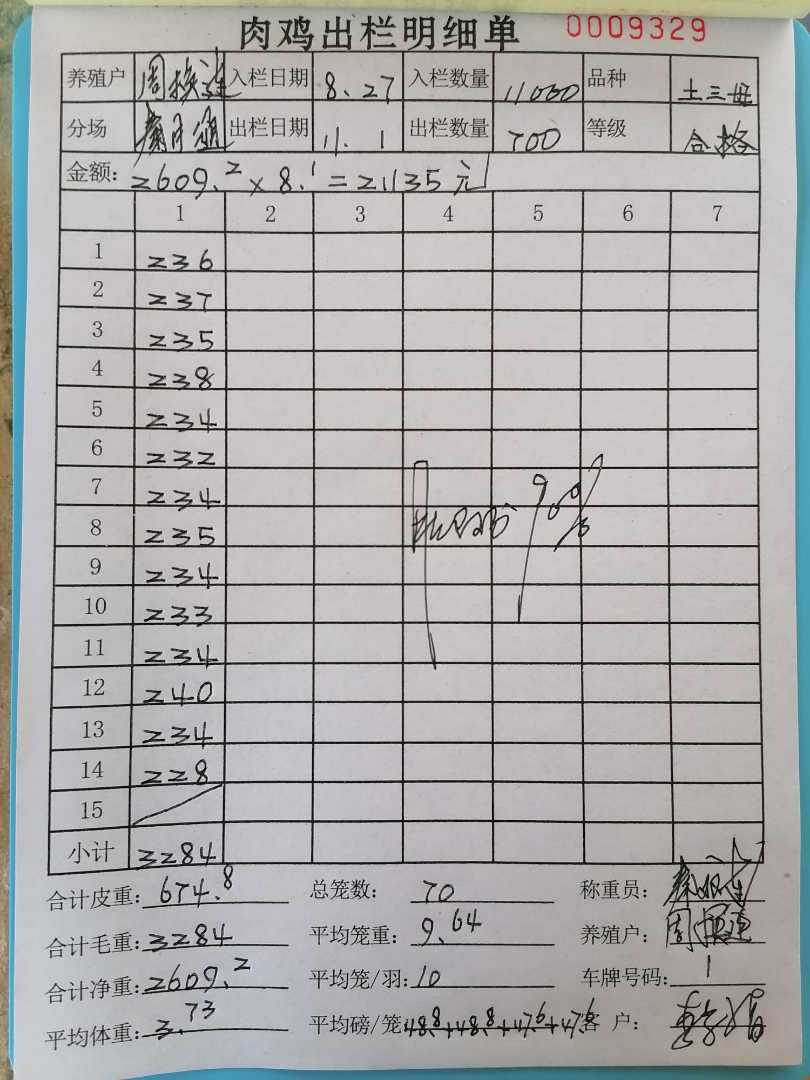 肉鸡出栏明细单 0009329
养殖户 周 入栏日期 8.27 入栏数量 11000 品种 土三母
分场 出栏日期 11.1 出栏数量 700 等级 合格
金额: 2609.2 x 8.1 = 21135元
1 2 3 4 5 6 7
1 236
2 237
3 235
4 238
5 234
6 232
7 234
8 235
9 234
10 233
11 234
12 240
13 234
14 228
15
小计 3284
90%
合计皮重: 674.8 总笼数: 70 称重员:
合计毛重: 3284 平均笼重: 9.64 养殖户: 周
合计净重: 2609.2 平均笼/羽: 10 车牌号码: 1
平均体重: 3.73 平均磅/笼: 48.8+48.8+47.6+47.6 客 户: